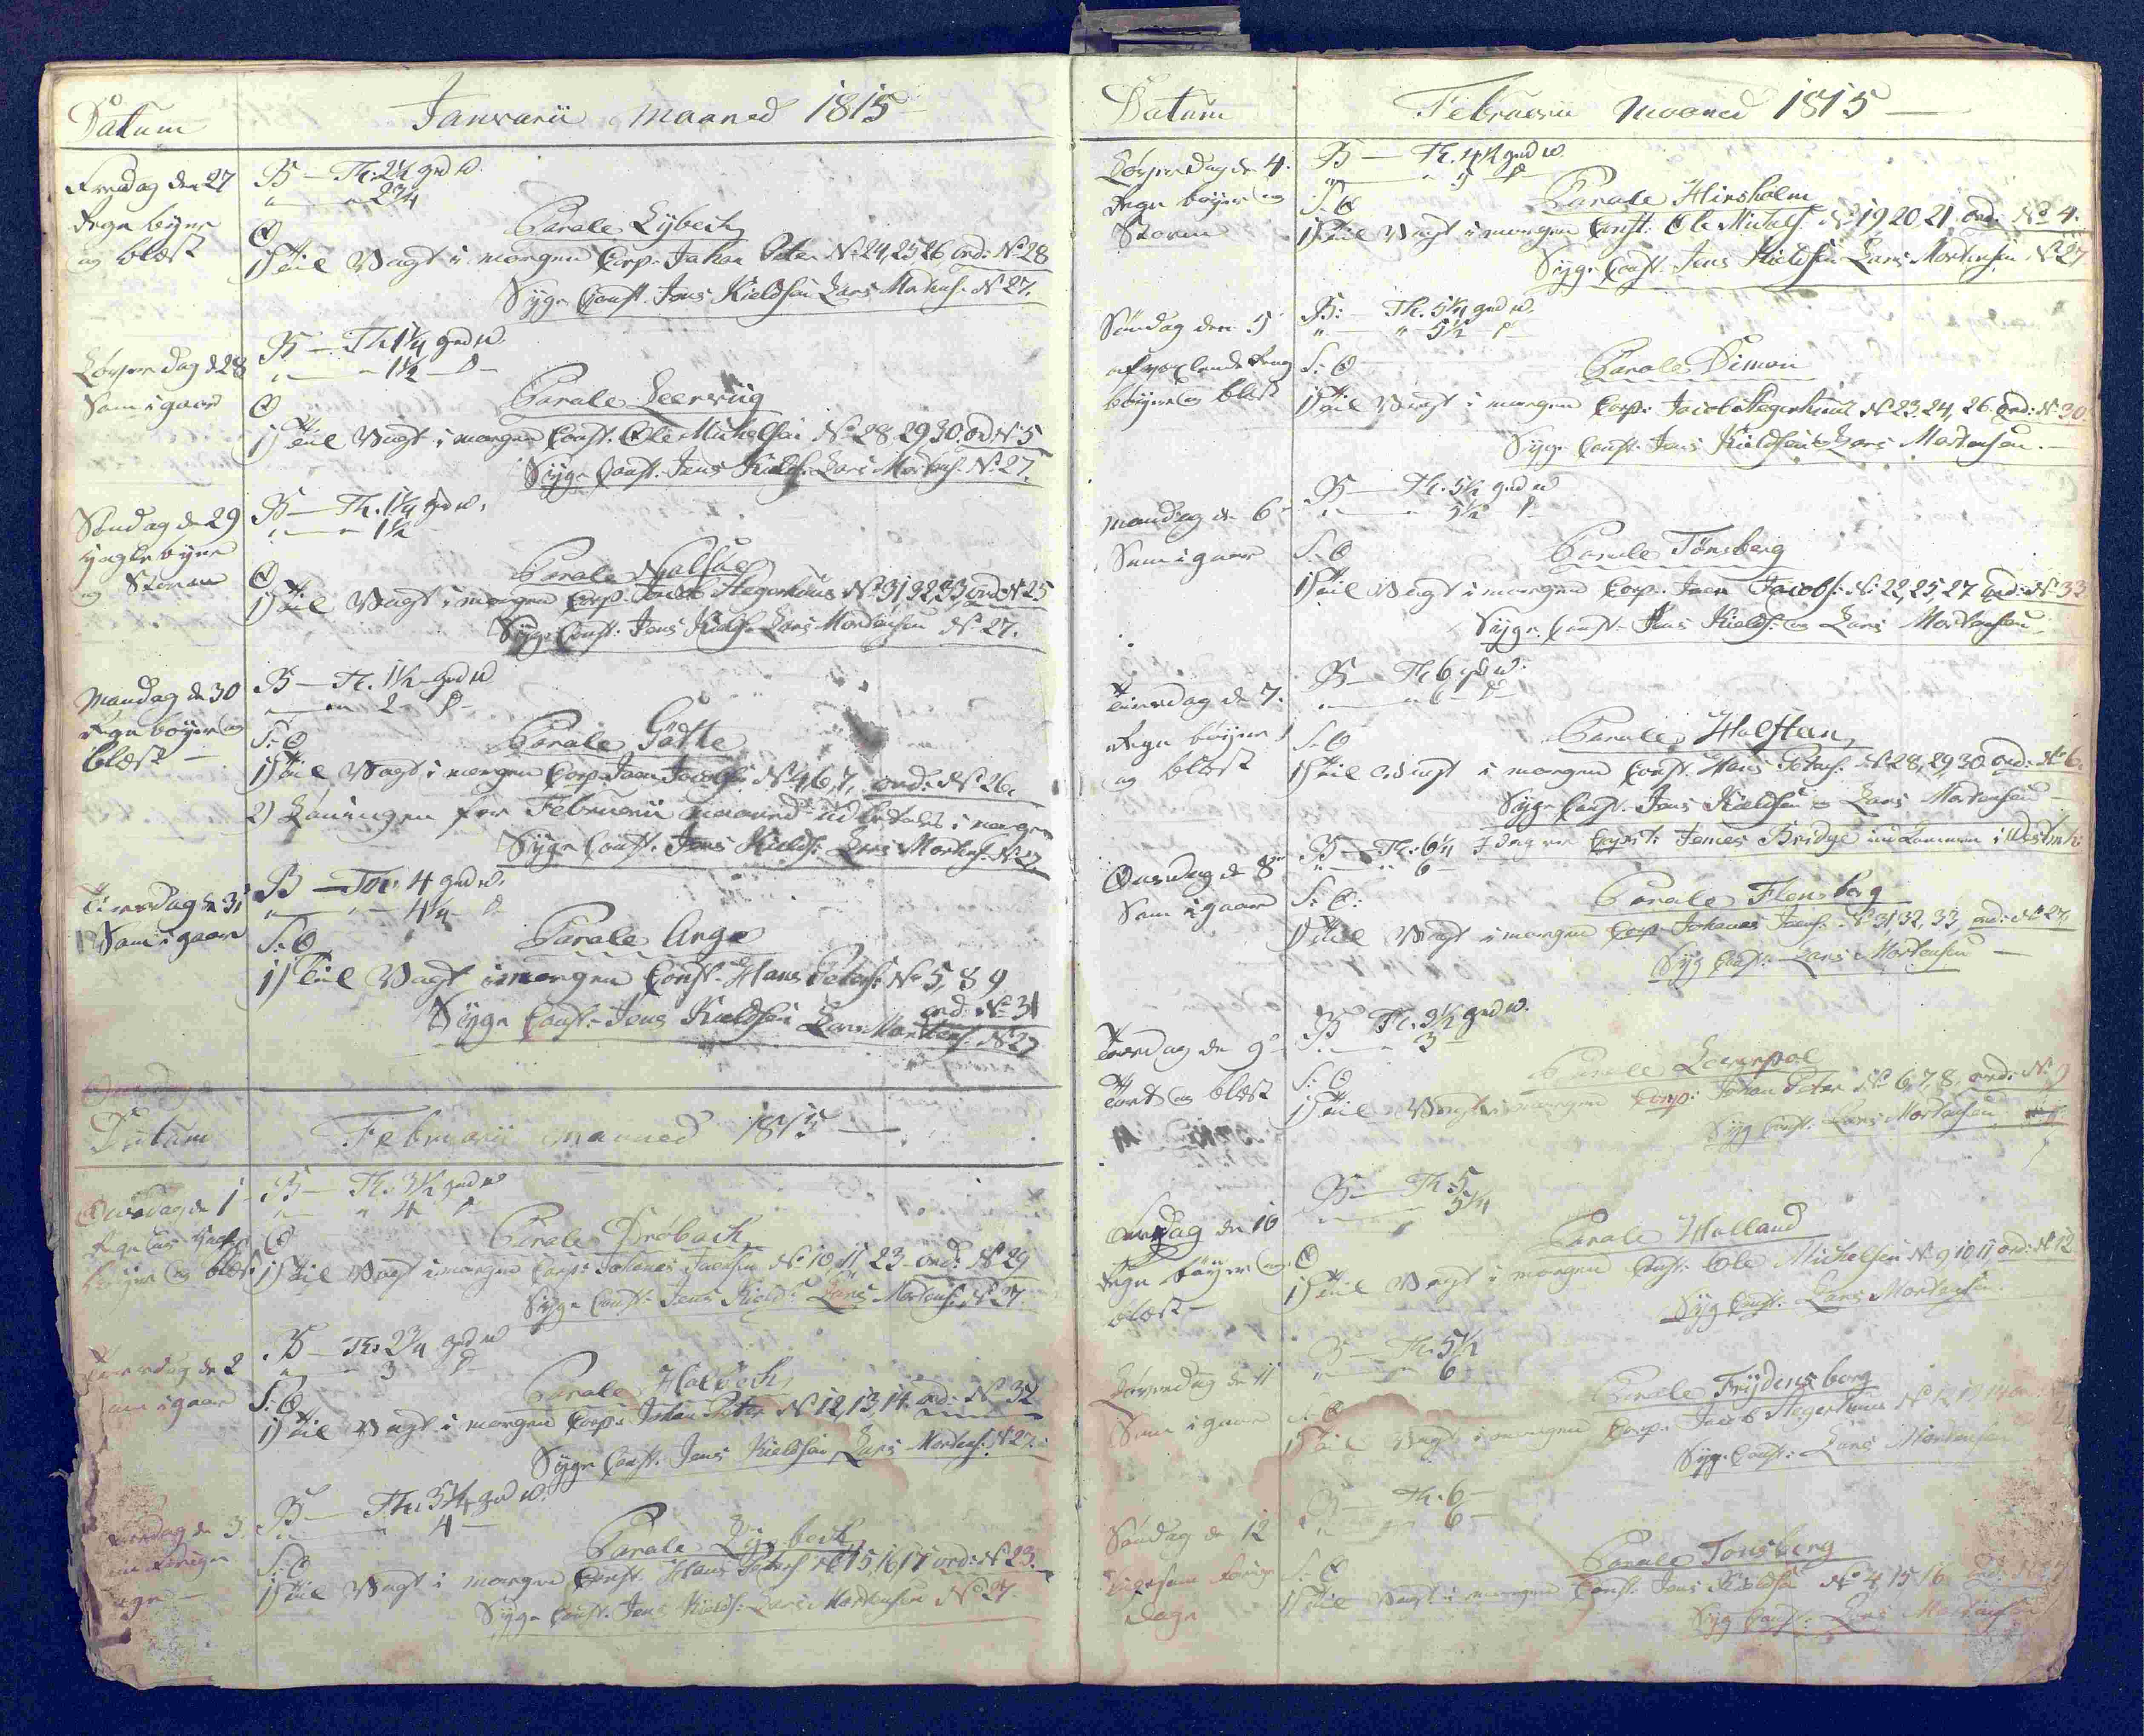 Datum
Januarii Maaned 1815
Fredag den 27
Regn byger
og blæst
B — Th: 2 1/4 grd w.
" — " 2 3/4
O
Parale Lybech
1) Til Vagt i morgen Corp. Johan Peter No 24, 25 26 ord: No 28
Syge Const. Jens Kieldsen Lars Mortens. No 27.
Løverdag d 28
Som i gaar
B — Th 1 1/4 grd w.
" — " 1 1/2 — D —
O
Parale Leervig
1) Til Vagt i morgen Const. Ole Michelsen No 28. 29 30. ord No 5
Syge Const. Jens Kields. Lars Mortens. No 27.
Søndag de 29
Hagle byger
og Storm
B — Th. 1 1/4 grd w.
" — " 1 1/2
O
Parale Nolsøe
1) Til Vagt i morgen Corp. Jacob Hegerhuus No 31 32 33, ord No 25
Syge Const: Jens Kields. Lars Mortensen No 27.
Mandag de 30
Regn bøyer og
blæst —
B — Th. 1 1/2 grd w
" — " 2 — D —
S: O
Parale Gøthe
1) Til Vagt i morgen Corp. Joen Jacobs. No 4, 6, 7, ord: No 26.
2) Lønningen for Februarii maaned udbetales i morgen
Syge Const. Jens Kields: Lars Mortens. No 27.
Tiersdag de 31
Som i gaar
B — Th: 4 grd w.
" — " 4 1/4 D
S: O
Parale Anga
1) Til Vagt i morgen Const. Hans Peters: No 5, 8 9
ord: No 31
Syge Const. Jens Kieldsen Lars Mortens. No 27
Onsdag
Datum
Februarii maaned 1815 —
Onsdag de 1
Regn og Hagle
bøyer og blæst
B — Th. 3 1/2 grd w
" — " 4 D
O
Parale Drøbach
1) Til Vagt i morgen Corp: Johanes Joensen No 10 11, 23 ord: No 29
Syge Const. Jens Kields: Lars Mortens. No 27.
Torsdag de 2
Som i gaar
B — Th: 2 3/4 grd w
" — " 3 D —
S: O
Parale Holbech
1) Til Vagt i morgen Corp: Johan Peter No 12, 13, 14. ord: No 32
Syge Const. Jens Kieldsen Lars Mortens. No 27.
Fredag de 3
Som forige
Dage —
B — Th: 3 1/4 grd w.
" — " 4 —
S: O
Parale Lybech
1) Til Vagt i morgen Const. Hans Peters. No 15 16 17 ord: No 23.
Syge Const. Jens Kields: Lars Mortensen No 27.
Datum
Februarii Maaned 1815 —
Løverdag de 4.
Regn bøyer og
Storm
B — Th. 4 1/2 grd w
" — " 5 D
S. O
Parale Hinsholm
1) Til Vagt i morgen Const: Ole Michels. No 19 20 21. ord: No 4.
Syge Const. Jens Kieldsen Lars Mortensen No 27
Søndag den 5
afvexlende Regn
bøyer og blæst
B: Th. 5 1/4 grd w.
" — " 5 1/2 D —
S: O
Parale Dimon
1) Til Vagt i morgen Corp: Jacob Hegerhuus No 23. 24, 26. ord: No 30.
Syge Const. Jens Kieldsen Lars Mortensen. —
Mandag de 6
Som i gaar
B — Th. 5 1/2 grd w
" — 5 1/2 D —
S. O
Parale Tønsberg
1) Til Vagt i morgen Corp. Joen Jacobs: No 22, 25, 27 ord: No 33
Syge. Const. Jens Kields: og Lars Mortensen
Tiersdag de 7.
Regn bøyer
og blæst
B — Th 6 grd w.
" — " 6 — D —
S. O
Parale Holsteen
1) Til Vagt i morgen Const. Hans Peters. No 28, 29 30 ord: No 6.
Syge Const. Jens Kieldsen og Lars Mortensen —
Onsdag de 8
Som i gaar
B — Th: 6 1/4 I dag er Capt: James Bridge
" — " 6 —
S: O:
Parale Flensborg
1) Til Vagt i morgen Corp Johanes Joens. No 31 32, 33, ord: No 27,
Syg Const. Lars Mortensen —
Torsdag de 9
Tort og blæst
B Th. 3 1/2 grd w.
" — " 3
S: O
Parale Lewerpol
1) Til Vagt i morgen Corp: Johan Peter No 6, 7, 8, ord: No 9
Syg Const. Lars Mortensen
Fredag de 10
Regn bøyer og
blæst —
B — Th: 5
" — 5 1/4
O
Parale Holland
1) Til Vagt i morgen Const: Ole Michelsen No 9 10 11, ord: No 12
Syg Const: Lars Mortensen.
Løverdag de 11
Som i gaar
B — Th: 5 1/2
" — " 6
S. O
Parale Frydensborg
1) Til Vagt i morgen Corp: Jacob Hegerhuus No 12 13 14
Syge Const: Lars Mortensen
Søndag de 12
forige
Dage
B — Th. 6 —
" — " 6 —
S. O
Parale Tonsberg
1) Til Vagt i morgen Const. Jens Kieldsen No 4 15 16
Syg Const: Lars Mortensen